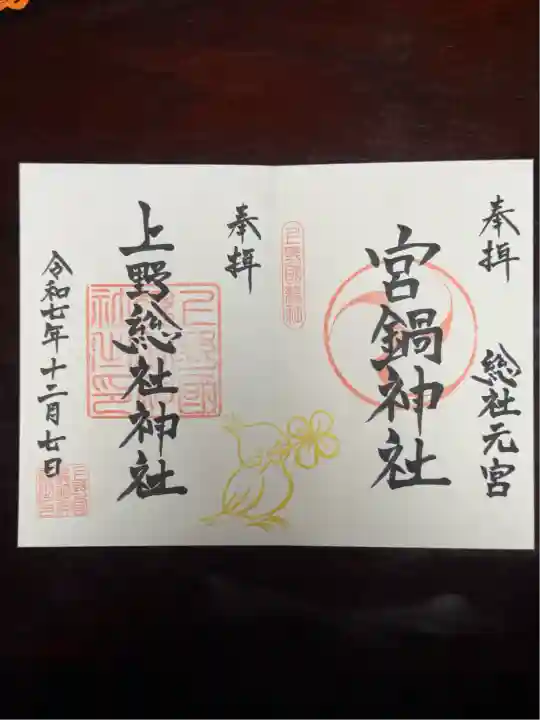 奉拝
総社元宮
宮鍋神社
奉拝
上野総社神社
令和七年十二月七日